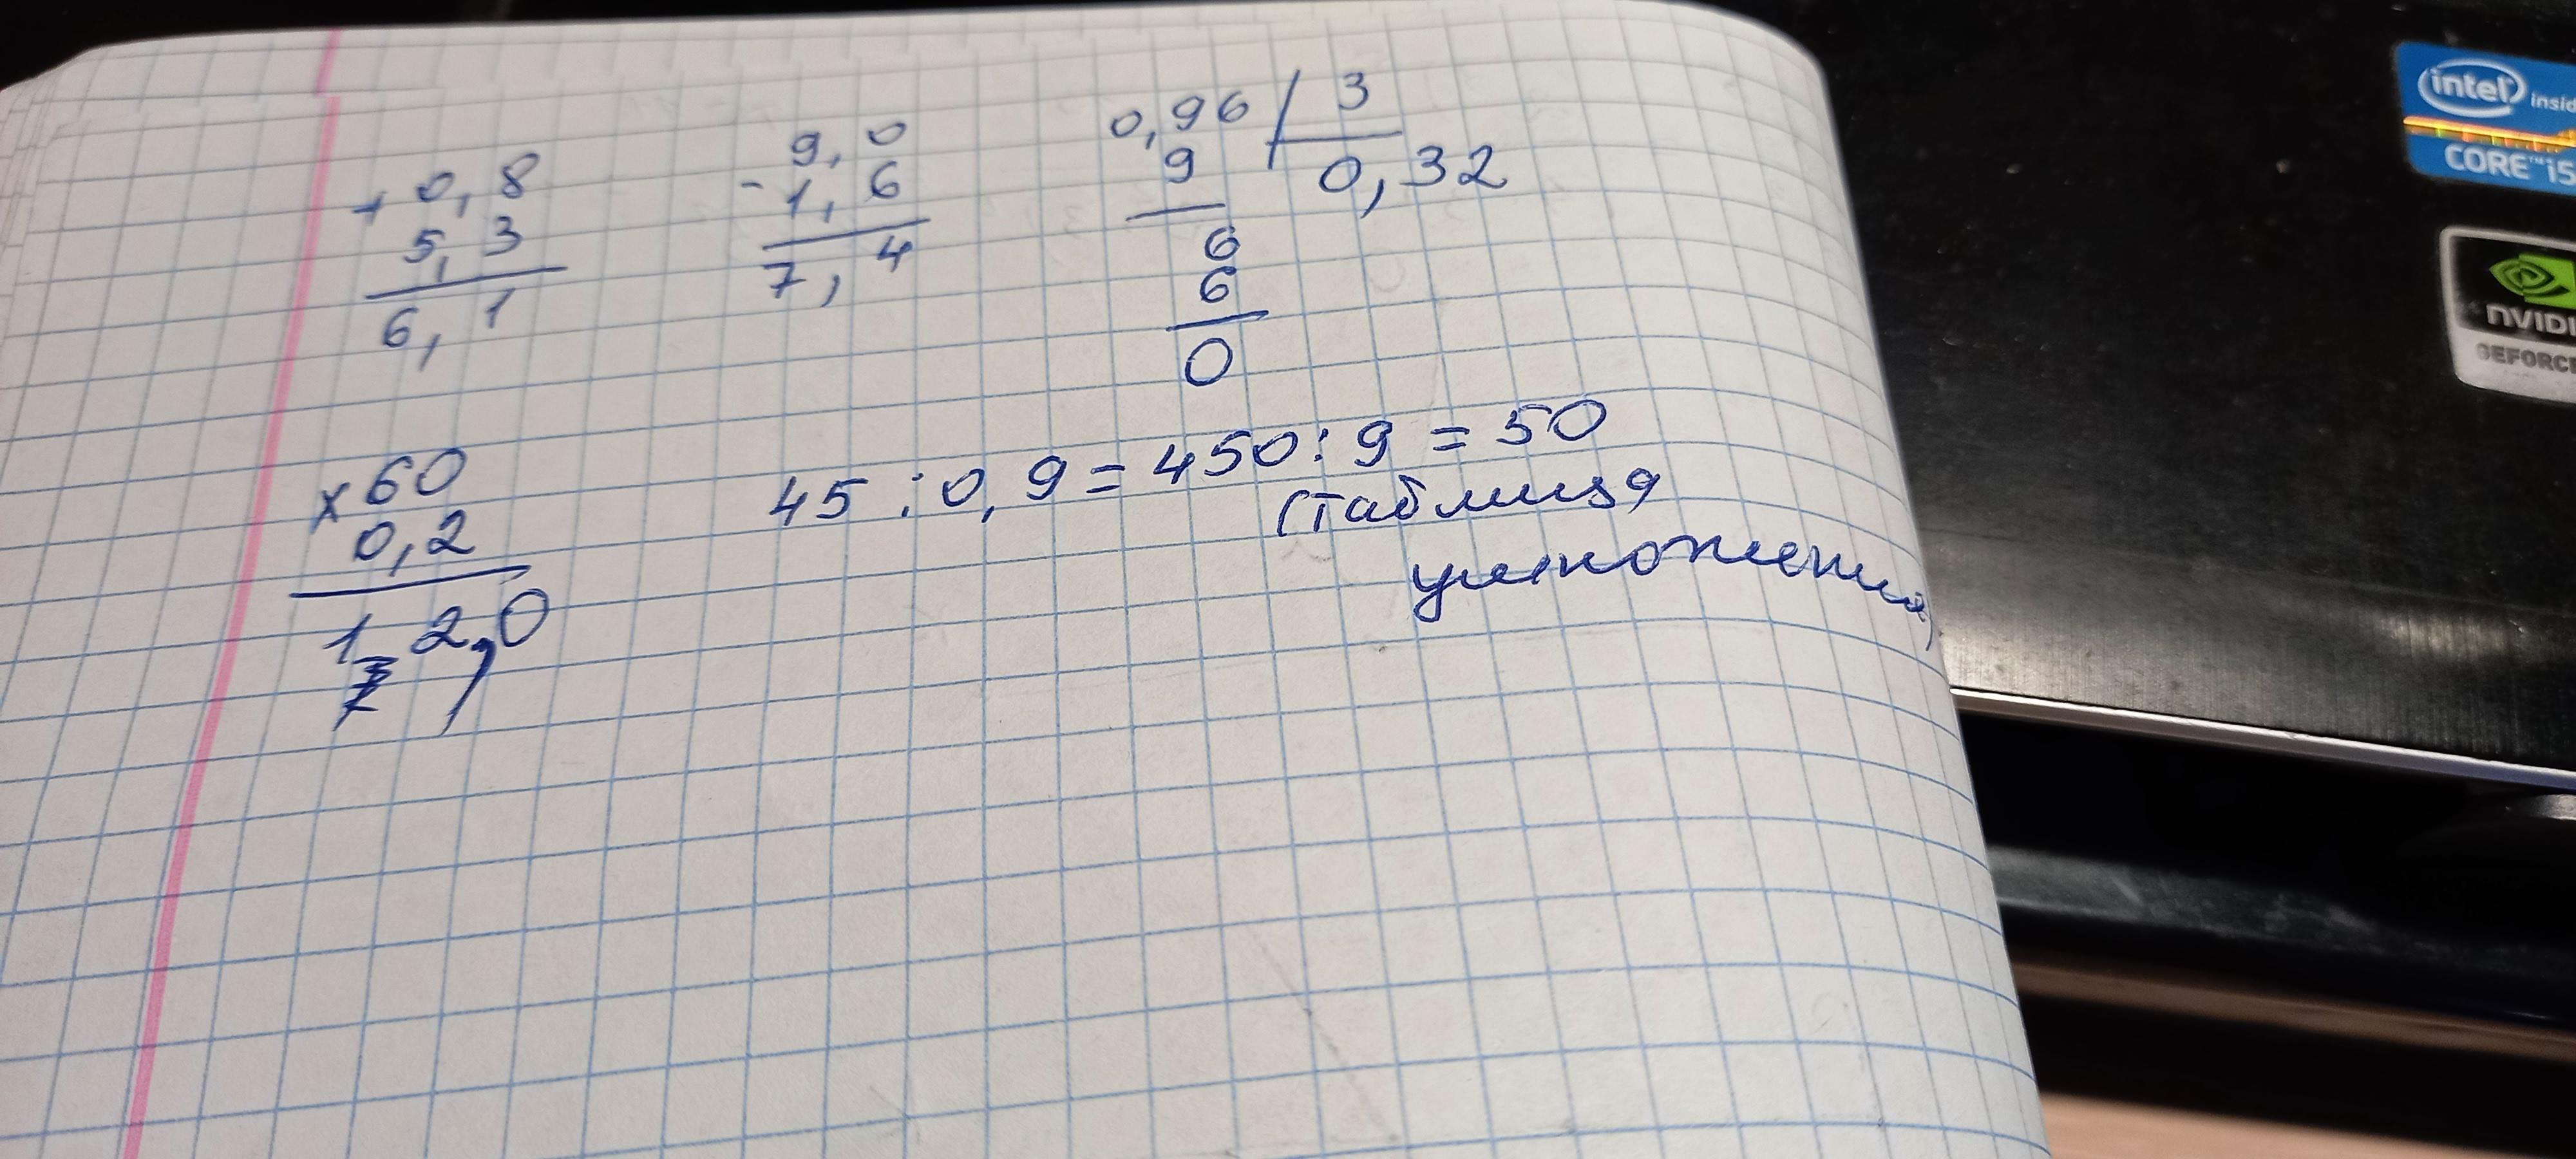 + 0,8
5,3
6,1
- 9,0
1,6
7,4
0,96 3
9 0,32
6
6
0
x 60
0,2
12,0
45 : 0,9 = 450 : 9 = 50
(таблица
умножения)
intel inside
CORE™ i5
NVIDI
GEFORCE